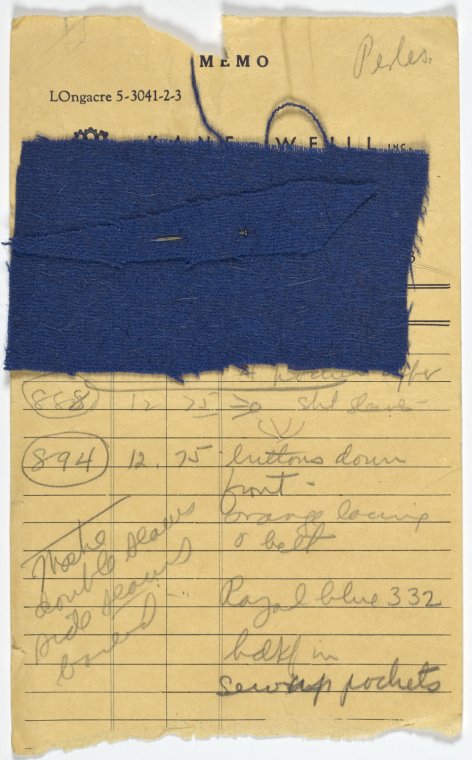 MEMO
Perles.
LOngacre 5-3041-2-3
KANE WEILL INC.
888 12 75 sht sleeves
894 12.75 buttons down
front -
orange lacing
& belt
Make
double seams
side seams
Royal blue 332
hdkf in
sew up pockets